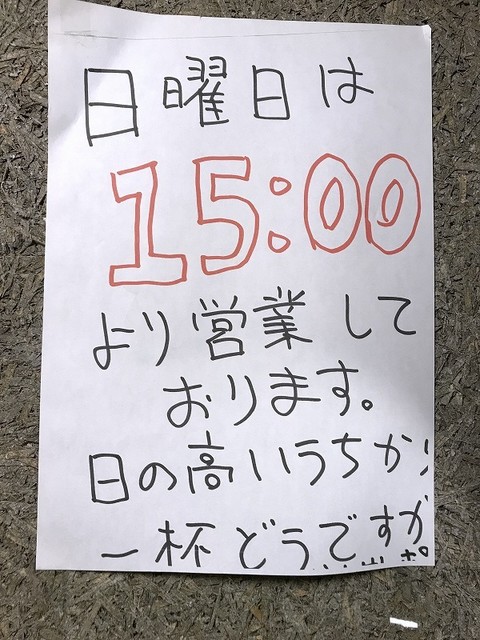 日曜日は
15:00
より営業して
おります。
日の高いうちか
一杯どうですか